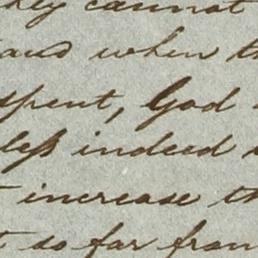 they cannot
and when th
spent, God
less indeed
t increase th
t so far from